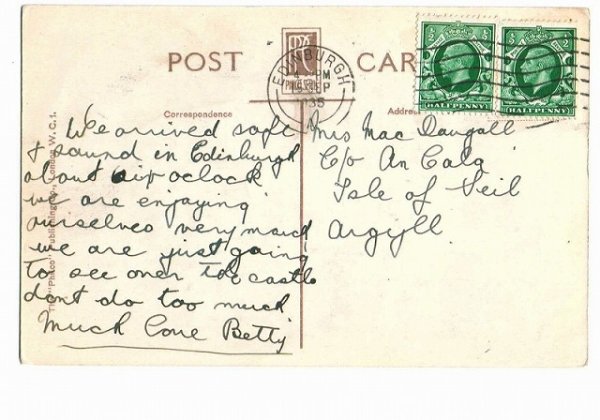 POST CARD
EDINBURGH
PM
SEP
1935
½ ½
HALFPENNY
½ ½
HALFPENNY
Correspondence
Address
We arrived safe
& sound in Edinburgh
about six oclock
we are enjoying
ourselves very much
we are just going
to see over the castle
dont do too much
Much Love Betty
Mrs Mac Dougall
C/o An Cala
Isle of Seil
Argyll
London W.C.1.